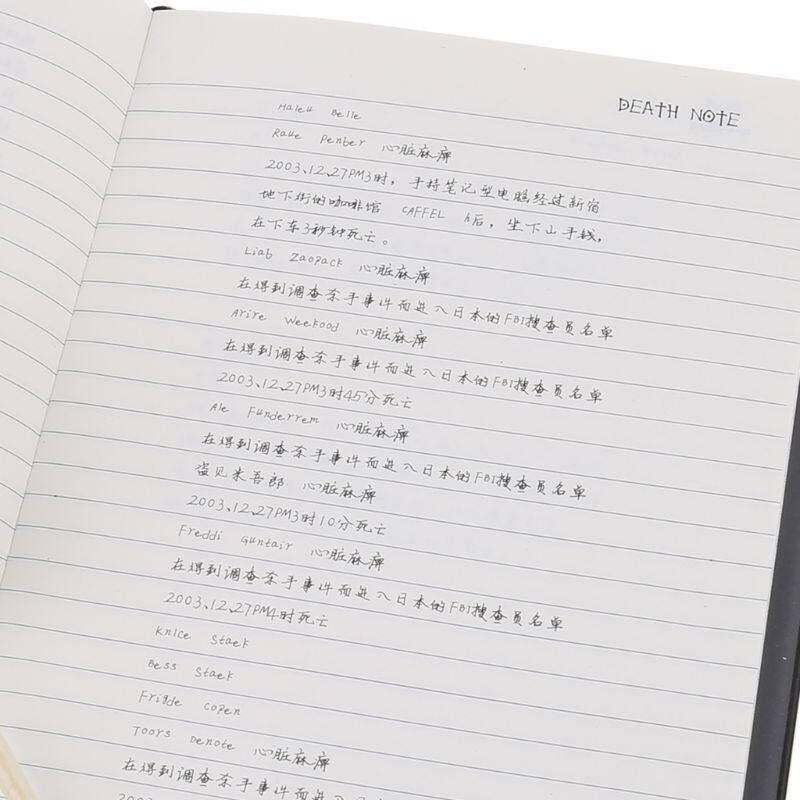 DEATH NOTE
Malek Belle
Raue Penber 心脏麻痹
2003、12、27PM3时，手持笔记型电脑经过新宿
地下街的咖啡馆 CAFFEL 后，坐下山手钱，
在下车3秒钟死亡。
Liab Zaopack 心脏麻痹
在得到调查杀手事件而进入日本的FBI搜查员名单
Arire Weekood 心脏麻痹
在得到调查杀手事件而进入日本的FBI搜查员名单
2003、12、27PM3时45分死亡
Ale Funderrem 心脏麻痹
在得到调查杀手事件而进入日本的FBI搜查员名单
盗见米吾郎 心脏麻痹
2003、12、27PM3时10分死亡
Freddi Guntair 心脏麻痹
在得到调查杀手事件而进入日本的FBI搜查员名单
2003、12、27PM4时死亡
Knice Staek
Bess Staek
Frigde Copen
Toors Denote 心脏麻痹
在得到调查杀手事件而进入日本的FBI搜查员名单